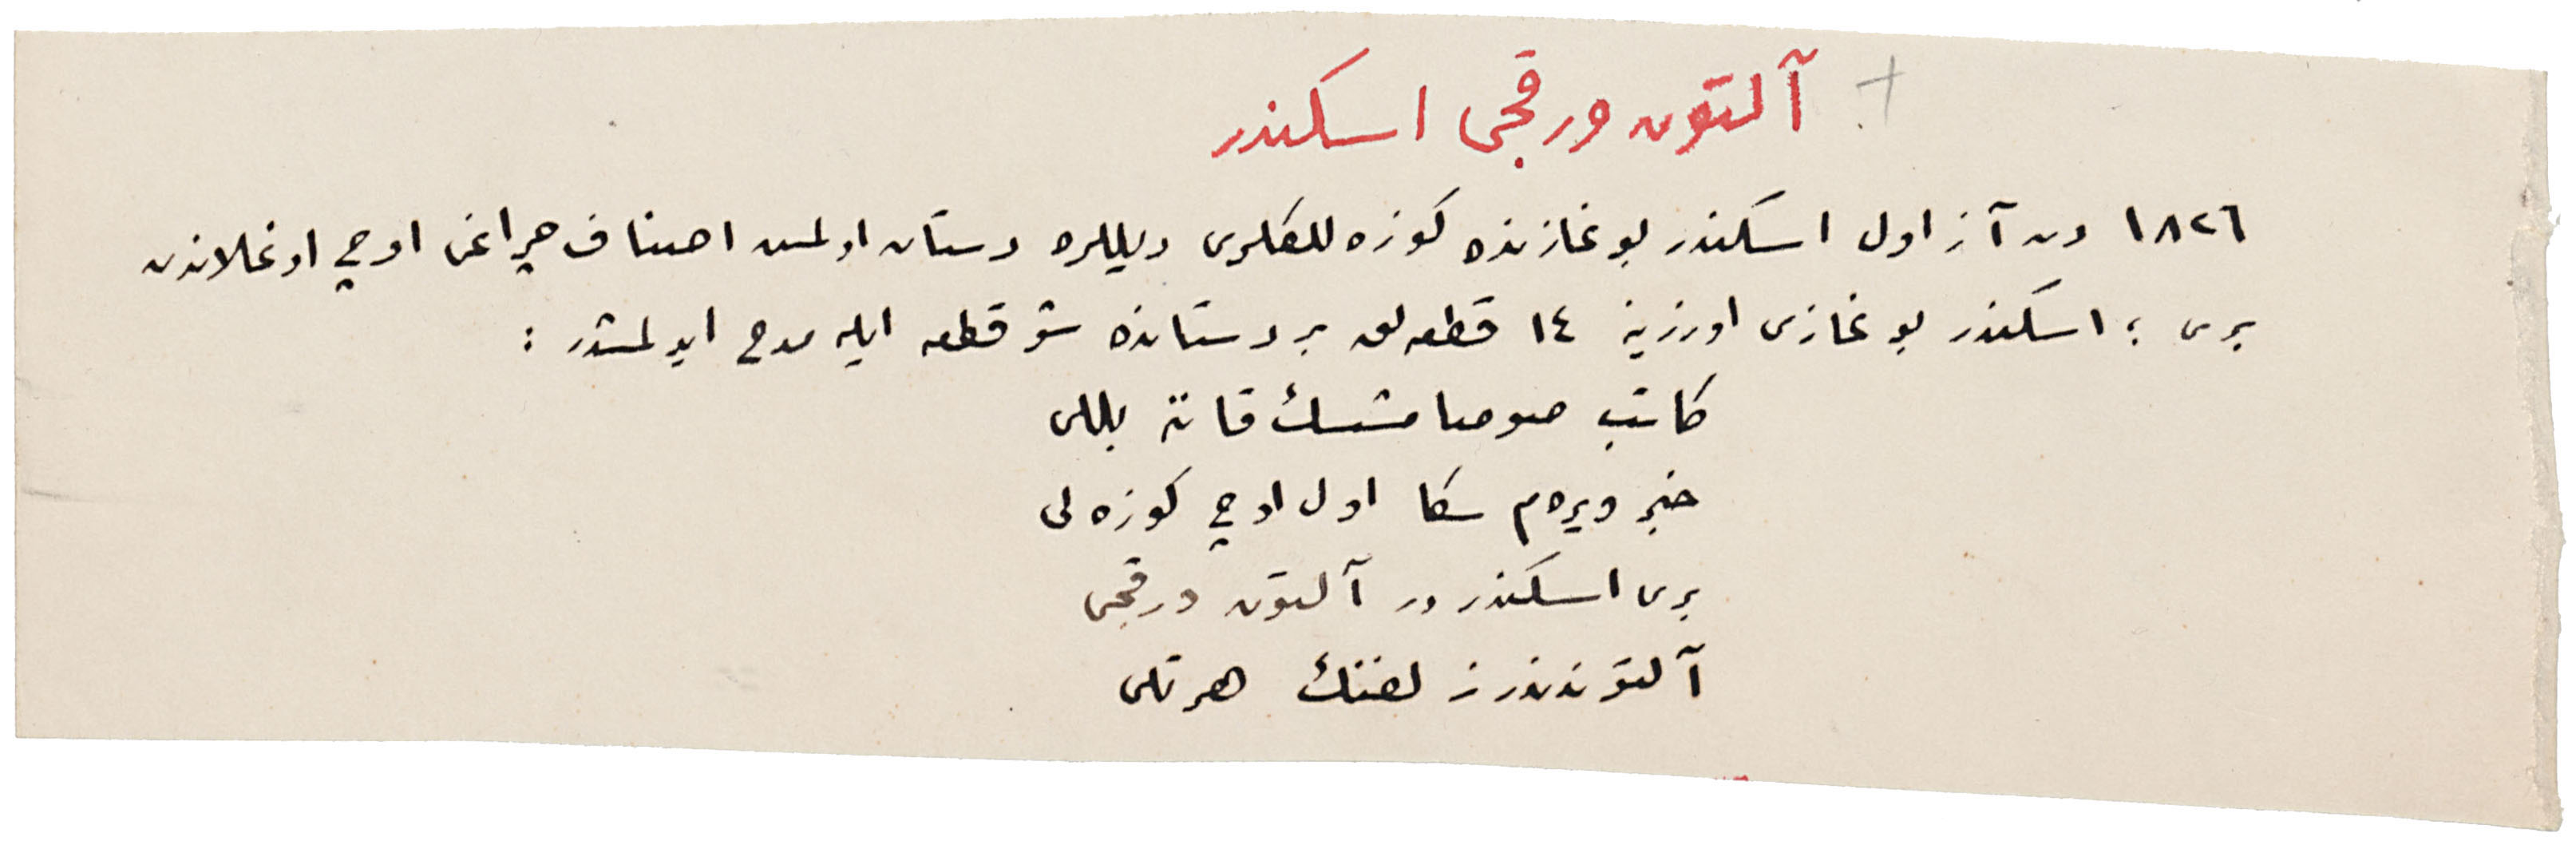 آلتون ورقجى اسكندر
١٨٢٦ دن آز اول اسكندر بوغازنده كوزه‌للكلرى ديللره دستان اولمش اصناف چراغى اوچ اوغلاندن
برى ؛ اسكندر بوغازى اوزرينه ١٤ قطعه‌لق بر دستانده شو قطعه ايله مدح ايدلمشدر :
كاتب صوصامشسك قانه بللى
خبر ويره‌م سكا اول اوچ كوزه‌لى
برى اسكندردر آلتون ورقجى
آلتوندندر زلفنك هر تلى